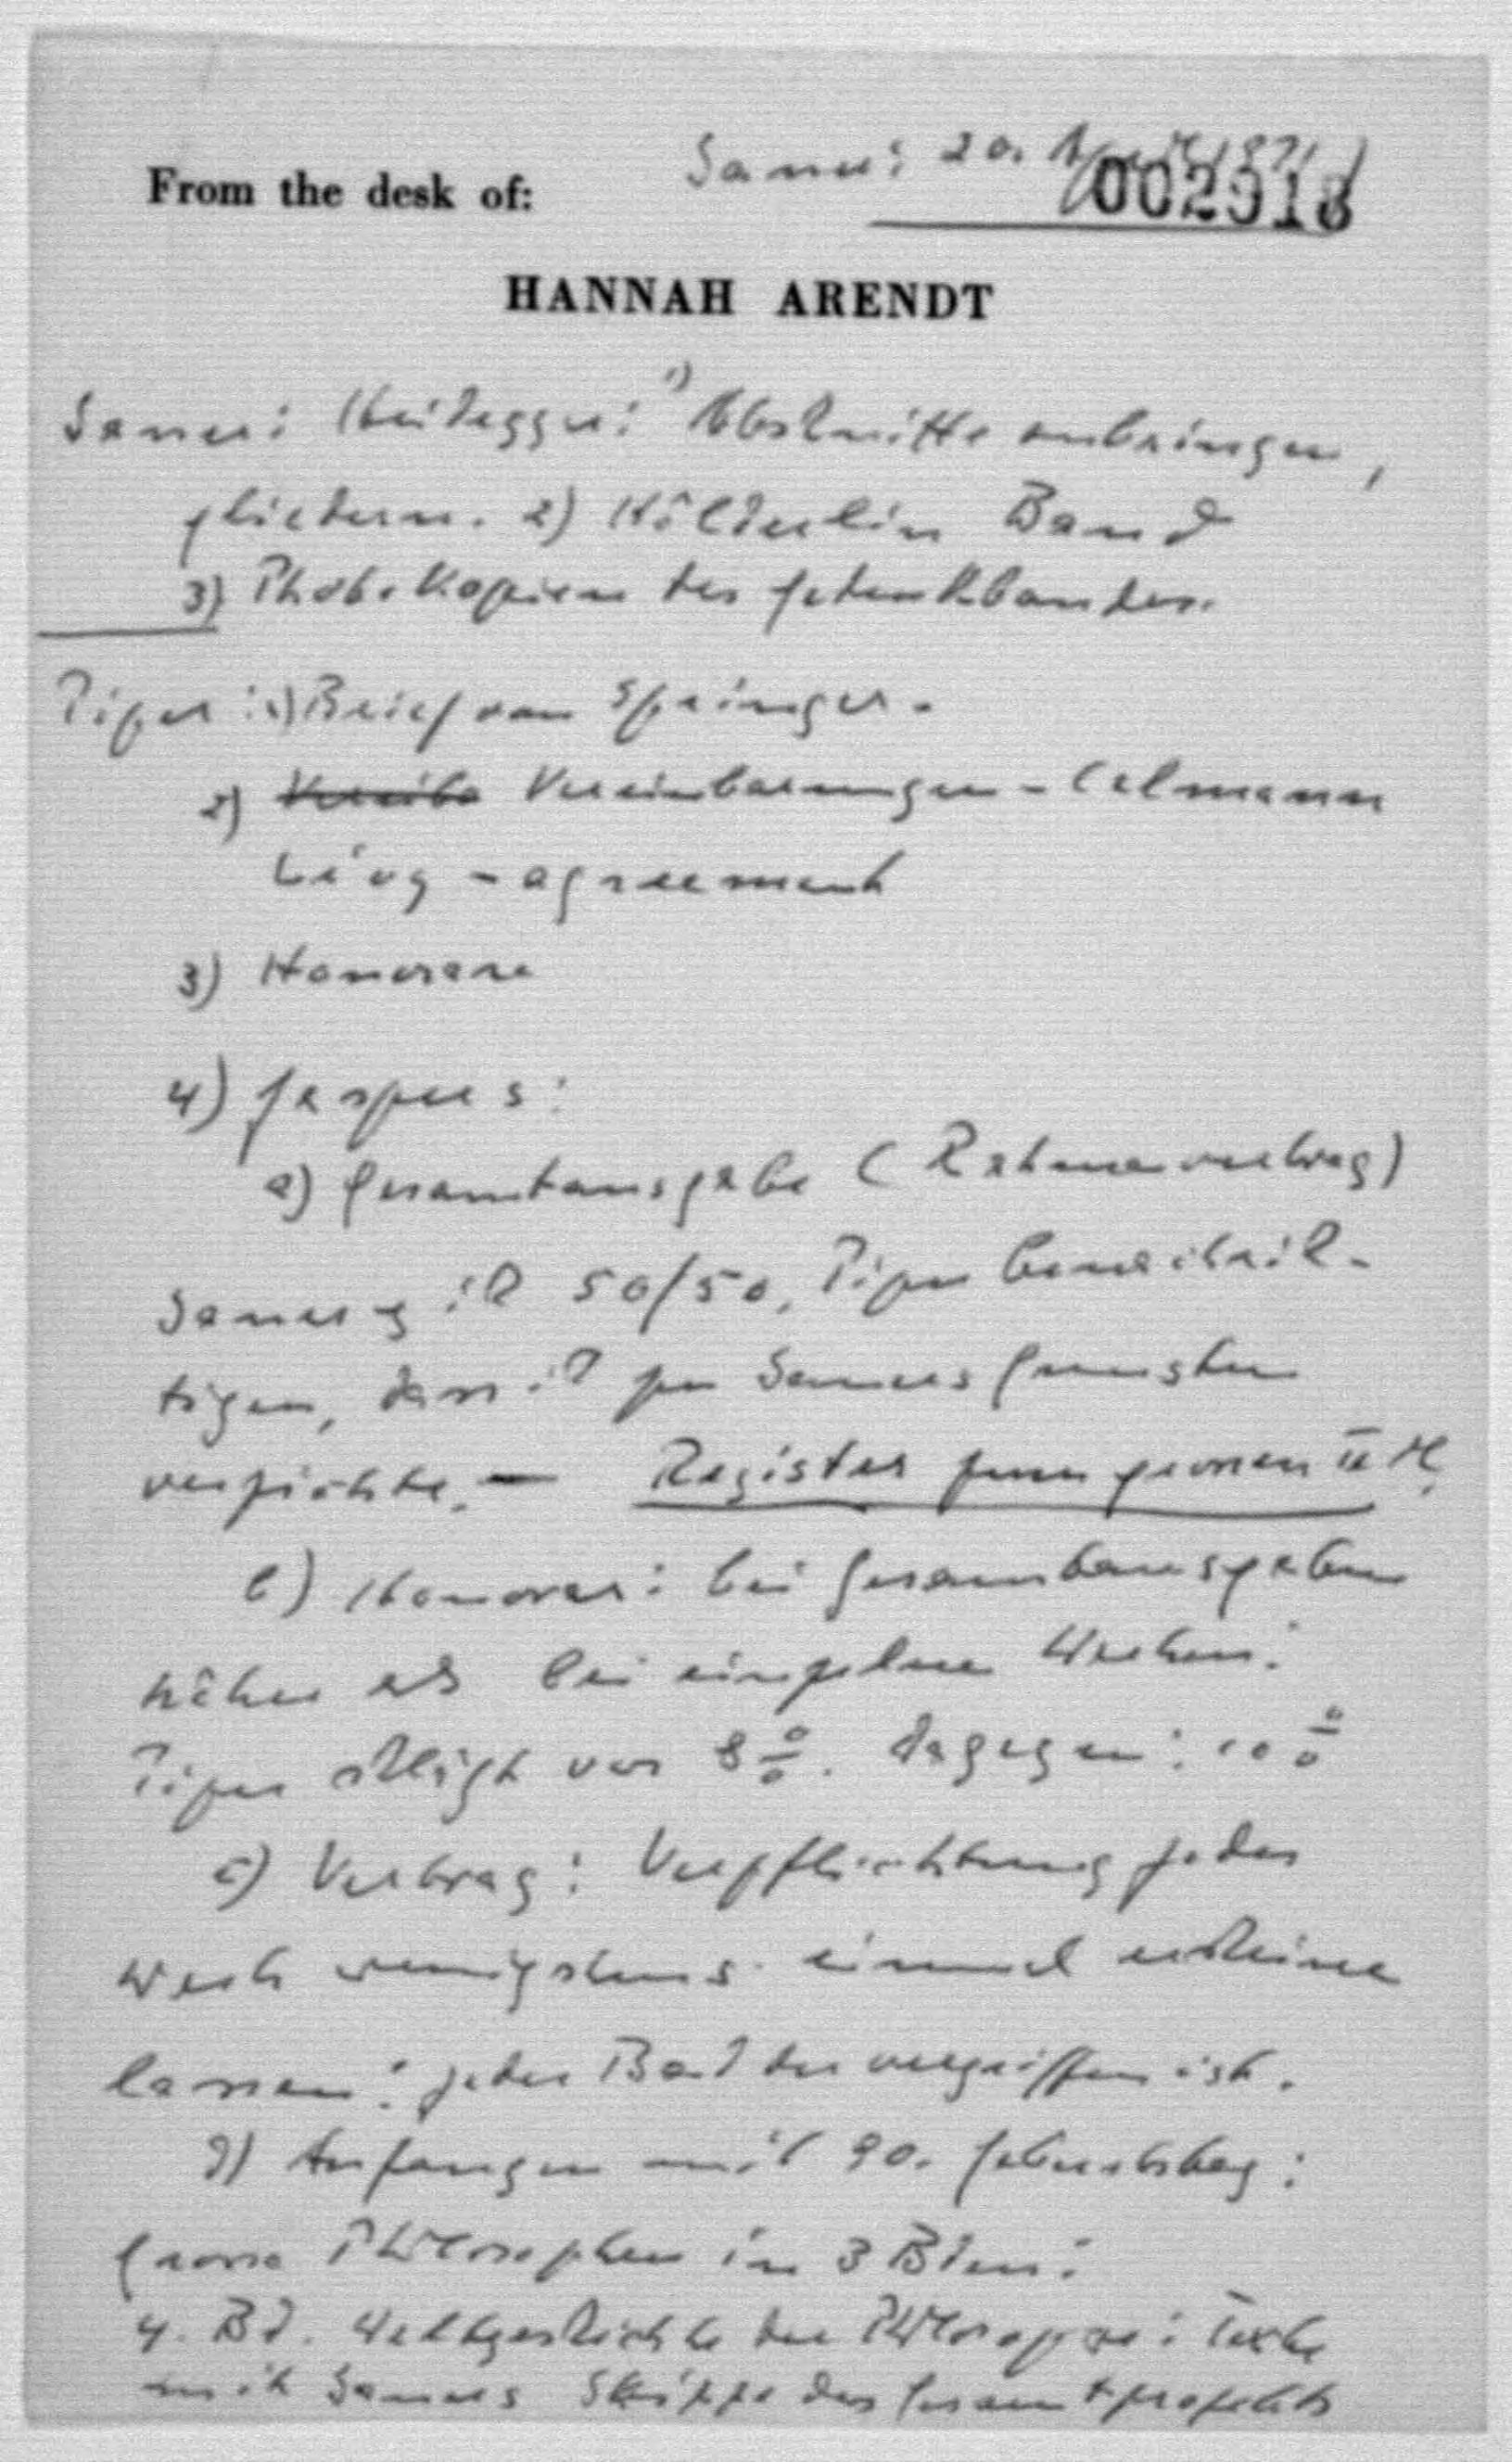 Saner: 20. April 1971
002518
From the desk of:
HANNAH ARENDT
Saner: Heidegger: 1) Abschnitte anbringen,
gliedern. 2) Hölderlin Band
3) Photokopien des Gedenkbandes.
Piper: 1) Brief von Springer.
2) Vereinbarungen - Calmann
Lévy - agreement
3) Honorare
4) Jaspers:
a) Gesamtausgabe (Rahmenvertrag)
Saner & ich 50/50, Piper benachrich-
tigen, dass ich zu Saners Gunsten
verzichte. — Register zum grossen
b) Honorar: bei Gesamtausgaben
höher als bei einzelnen Werken:
Piper schlägt vor 8%. Dagegen: 10%
c) Vertrag: Verpflichtung jedes
Werk wenigstens einmal erscheinen
lassen: jeder Band der vergriffen ist.
d) Anfangen mit 90. Geburtstag:
Grosse Philosophen in 3 Bden:
4. Bd. Weltgeschichte der Philosophie: Texte
mit Saners Skizze des Gesamtprojekts